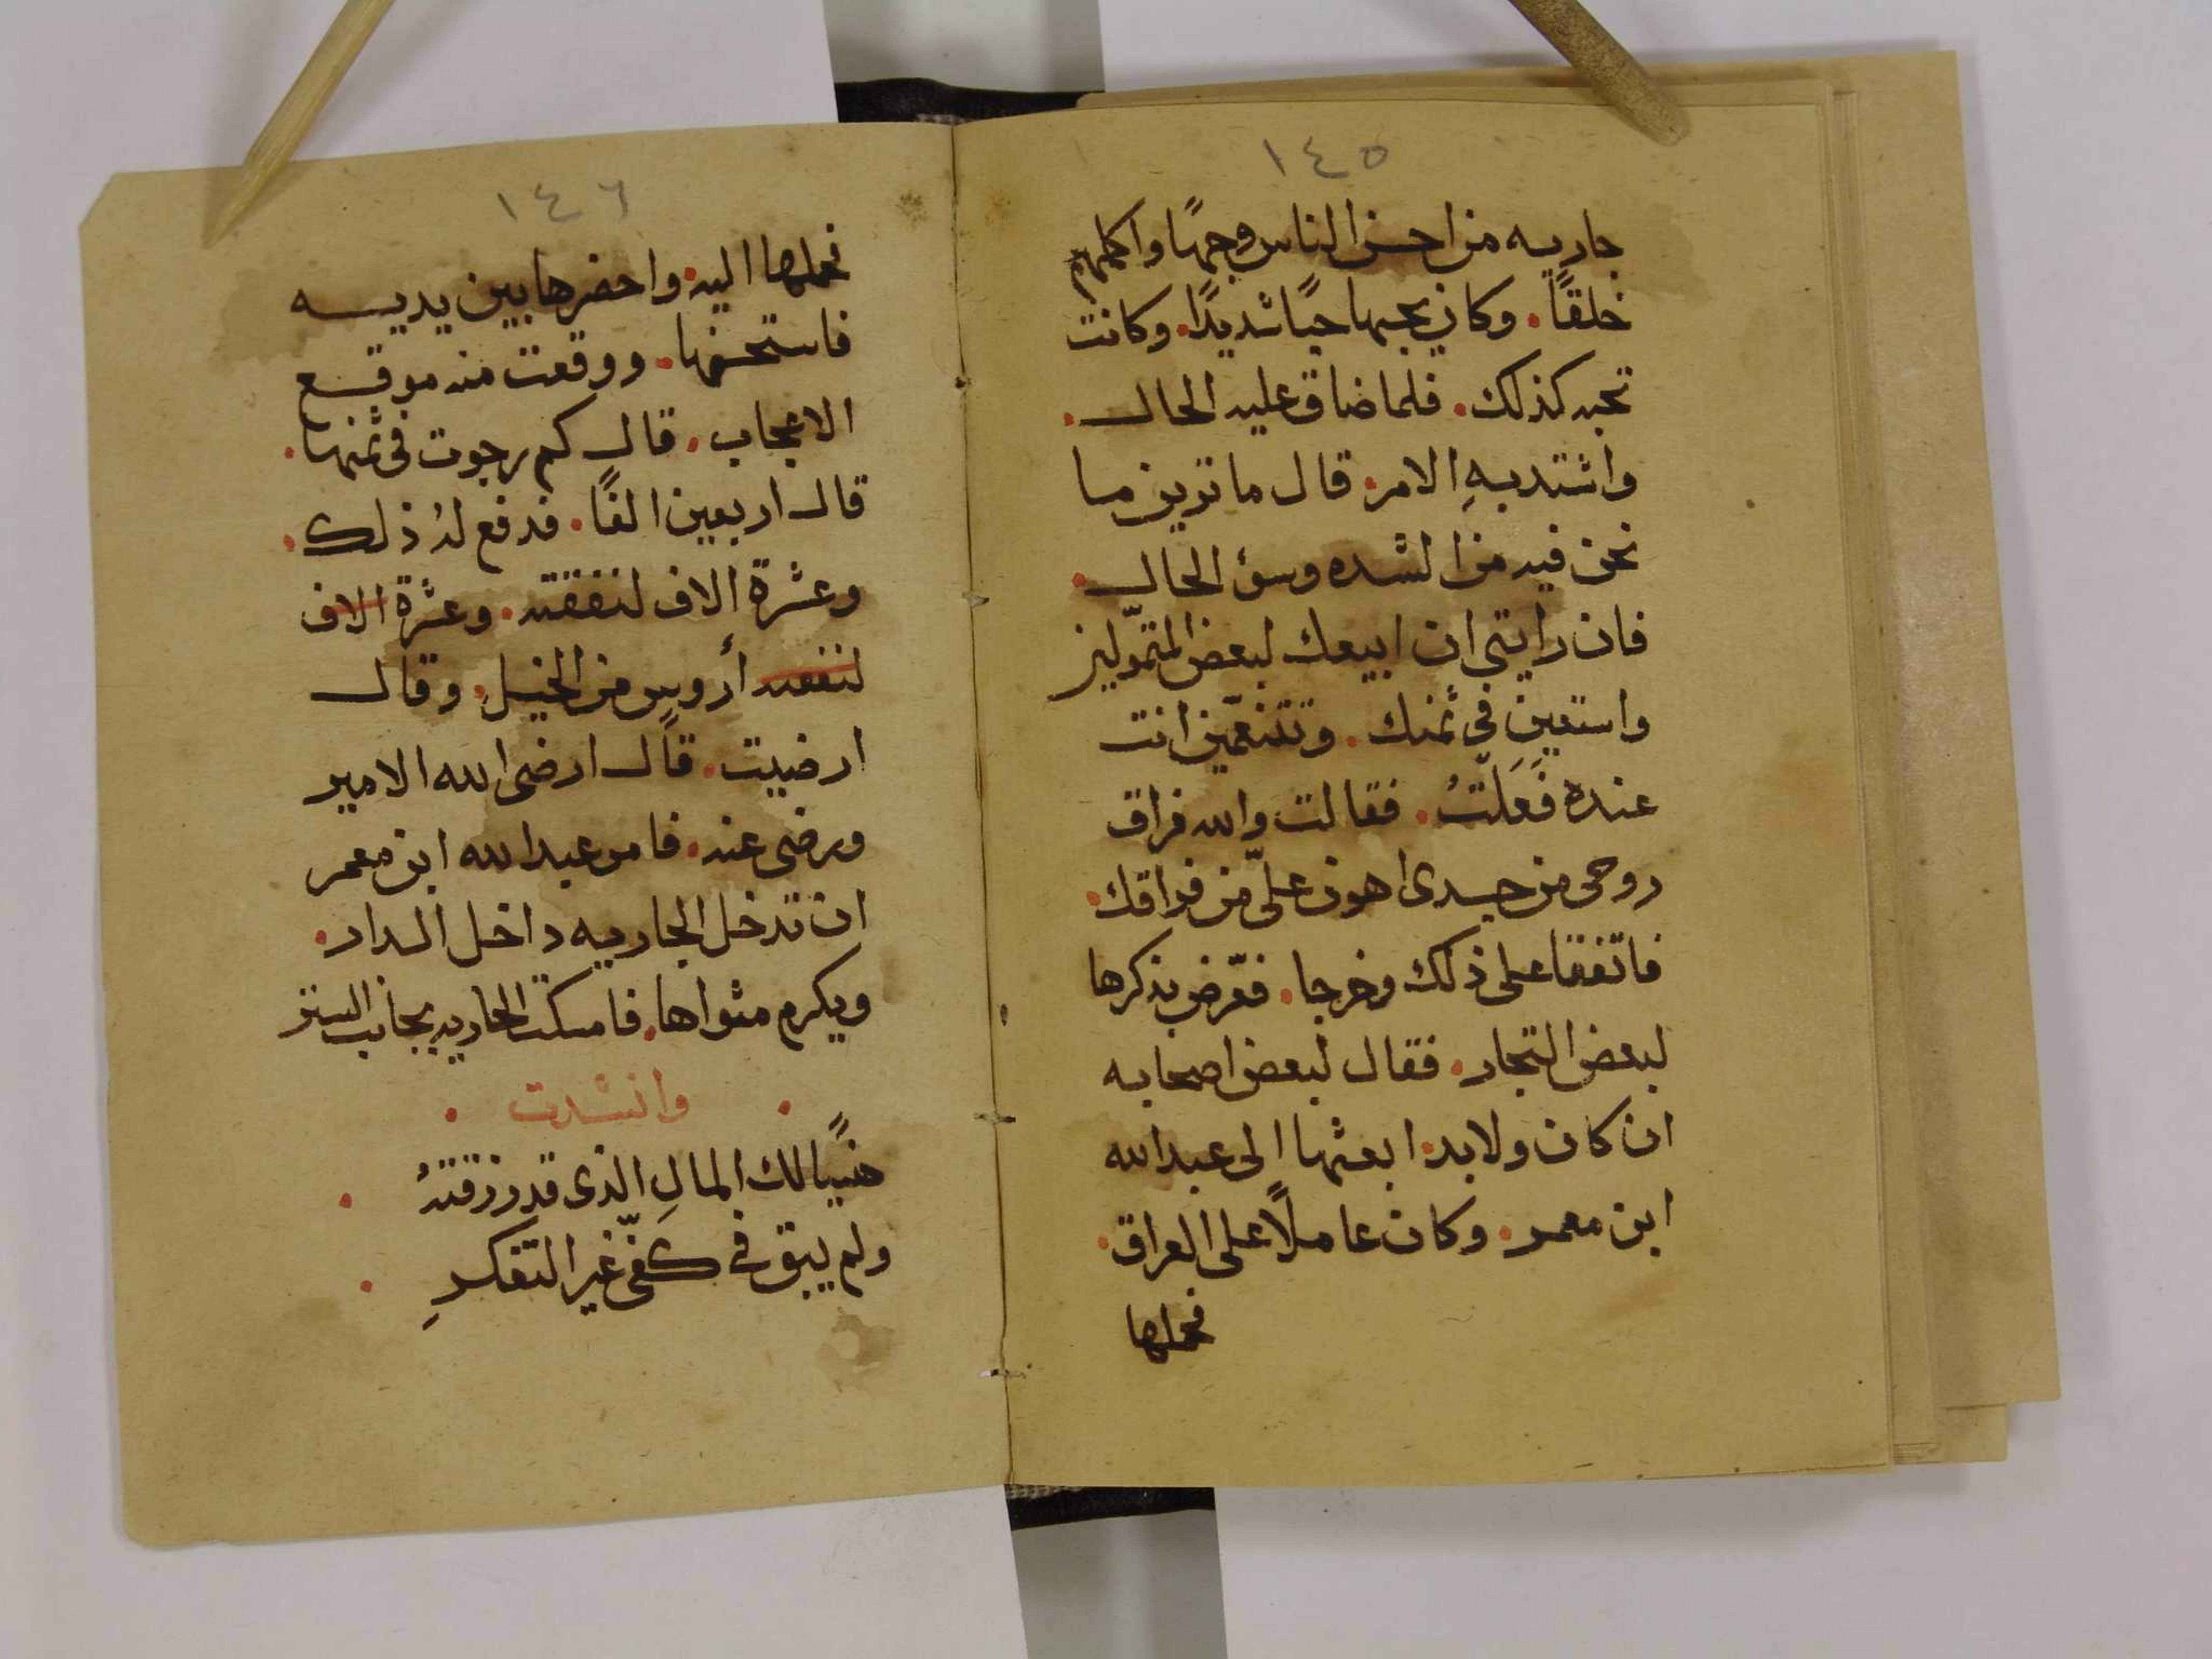 ١٤٥
جاريه من احسن الناس وجهًا واكملهم
خلقًا. وكان يحبها حبًا شديدًا. وكانت
تحبه كذلك. فلما ضاق عليه الحال.
واشتد بهِ الامر. قال ما ترين ما
نحن فيه من الشده وسؤ الحال.
فان رايتي ان ابيعك لبعض المتموّلين
واستعين في ثمنك. وتتنعّمين انت
عنده فَعَلْتُ. فقالت والله فراق
روحى من جسدى اهون علىّ من فراقك.
فاتفقا على ذلك وخرجا. فعّرض بذكرها
لبعض التجار. فقال لبعض اصحابه
ان كان ولابد. ابعثها الى عبدالله
ابن معمر. وكان عاملًا على العراق.
فحملها
١٤٦
فحملها اليه. واحضرها بين يديه
فاستحسنها. ووقعت منه موقع
الاعجاب. قال كم رجوت فى ثمنها.
قال اربعين الفًا. فدفع لهُ ذلك.
وعشرة الاف لنفقته. وعشرة الاف
لنفقته أروس من الخيل. وقال
ارضيت. قال ارضى الله الامير
ورضى عنه. فامر عبدالله ابن معمر
ان تدخل الجاريه داخل الدار.
ويكرم مثواها. فامسكت الجاريه بجانب الستر
. وانشدت .
هنيًا لك المالِ الذى قد رزقتهُ .
ولم يبق في كفىّ غير التفكرِ .